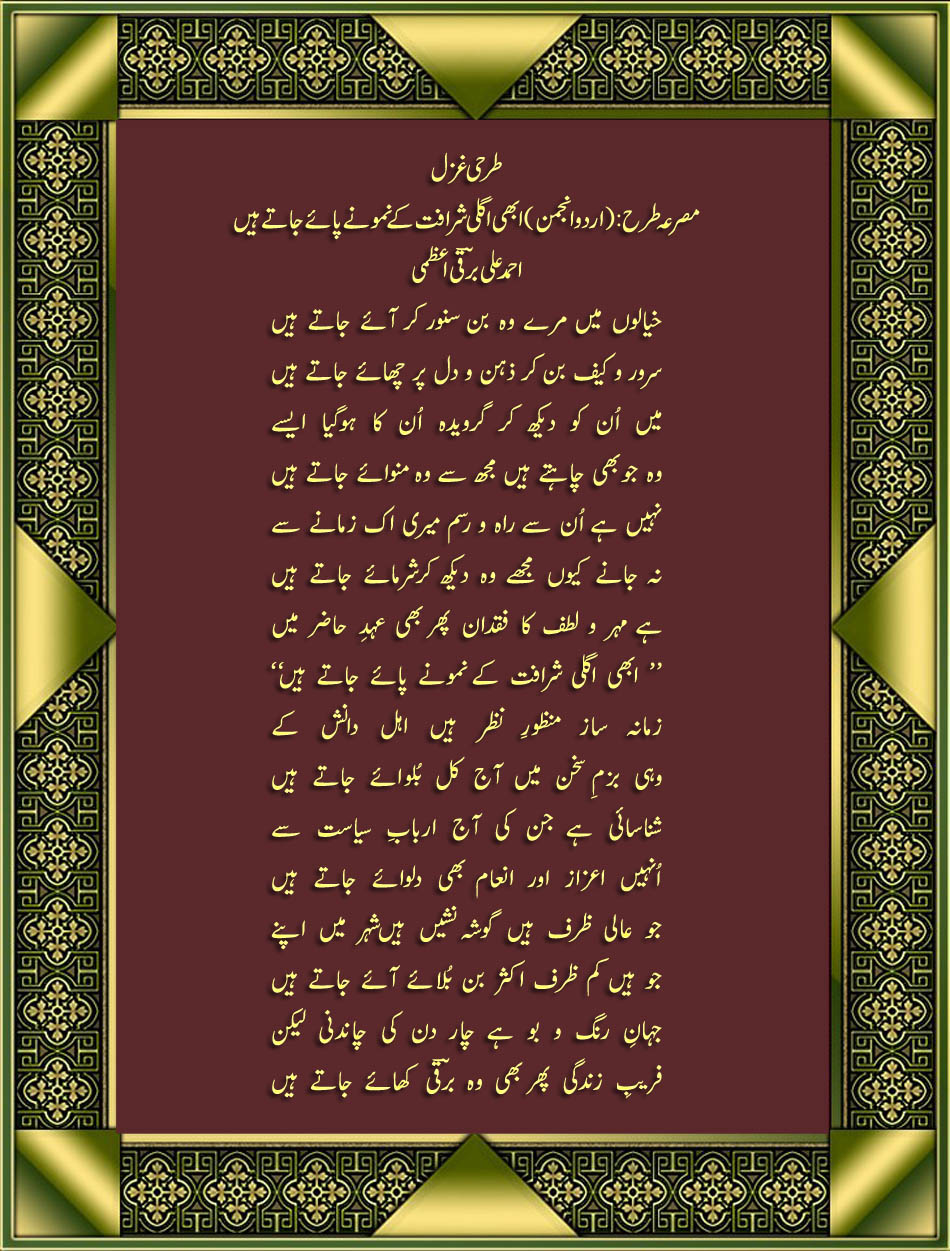 طرحی غزل
مصرعہ طرح: (اردو انجمن) ابھی اگلی شرافت کے نمونے پائے جاتے ہیں
احمد علی برقیؔ اعظمی
خیالوں میں مرے وہ بن سنور کر آئے جاتے ہیں
سرور و کیف بن کر ذہن و دل پر چھائے جاتے ہیں
میں اُن کو دیکھ کر گرویدہ اُن کا ہوگیا ایسے
وہ جو بھی چاہتے ہیں مجھ سے وہ منوائے جاتے ہیں
نہیں ہے اُن سے راہ و رسم میری اک زمانے سے
نہ جانے کیوں مجھے وہ دیکھ کر شرمائے جاتے ہیں
ہے مہر و لطف کا فقدان پھر بھی عہدِ حاضر میں
’’ ابھی اگلی شرافت کے نمونے پائے جاتے ہیں‘‘
زمانہ ساز منظورِ نظر ہیں اہل دانش کے
وہی بزمِ سخن میں آج کل بُلوائے جاتے ہیں
شناسائی ہے جن کی آج اربابِ سیاست سے
اُنہیں اعزاز اور انعام بھی دلوائے جاتے ہیں
جو عالی ظرف ہیں گوشہ نشیں ہیں شہر میں اپنے
جو ہیں کم ظرف اکثر بن بُلائے آئے جاتے ہیں
جہانِ رنگ و بو ہے چار دن کی چاندنی لیکن
فریبِ زندگی پھر بھی وہ برقیؔ کھائے جاتے ہیں